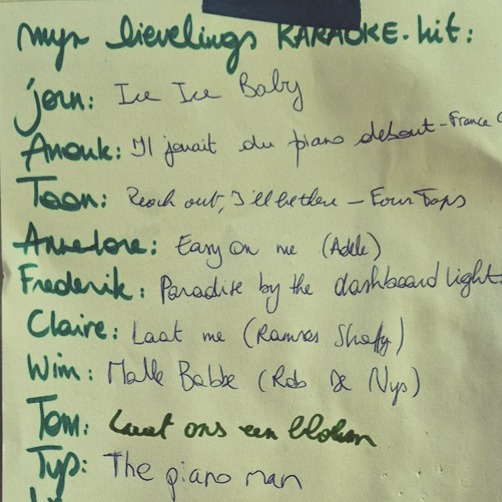 mijn lievelings KARAOKE.hit:
jorn: Ice Ice Baby
Anouk: Il jouait du piano debout - France
Toon: Reach out, I'll be there - Four Tops
Annelore: Easy on me (Adele)
Frederik: Paradise by the dashboard light
Claire: Laat me (Ramses Shaffy)
Wim: Malle Babbe (Rob De Nys)
Tom: Laat ons een bloem
Typ: The piano man